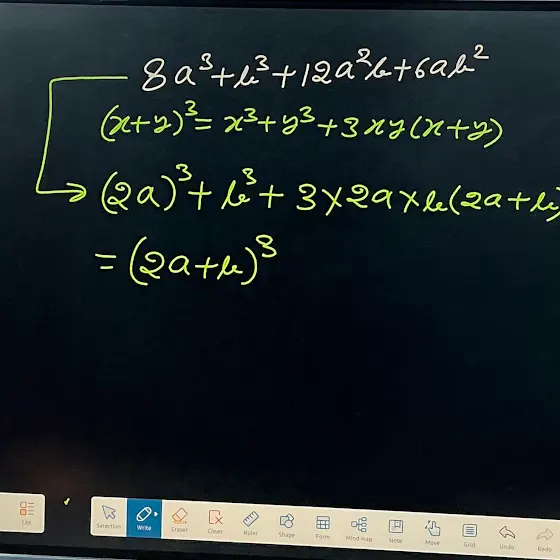 8a³+b³+12a²b+6ab²
(x+y)³=x³+y³+3xy(x+y)
(2a)³+b³+3×2a×b(2a+b)
=(2a+b)³
List
Selection
Write
Eraser
Clear
Ruler
Shape
Form
Mind map
Note
Move
Grid
Undo
Redo